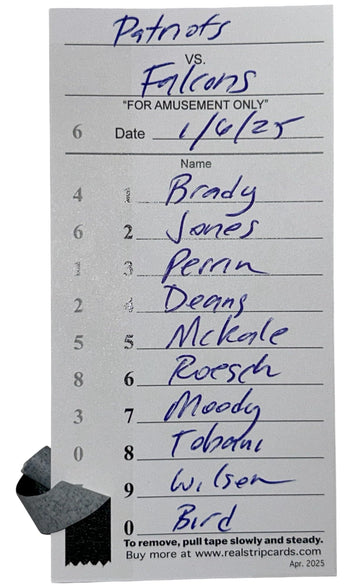 Patriots
VS.
Falcons
"FOR AMUSEMENT ONLY"
6 Date 1/6/25
Name
4 1 Brady
6 2 Jones
1 3 Perrin
2 4 Deans
5 5 McKale
8 6 Roesch
3 7 Moody
0 8 Tobani
9 Wilson
0 Bird
To remove, pull tape slowly and steady.
Buy more at www.realstripcards.com.
Apr. 2025